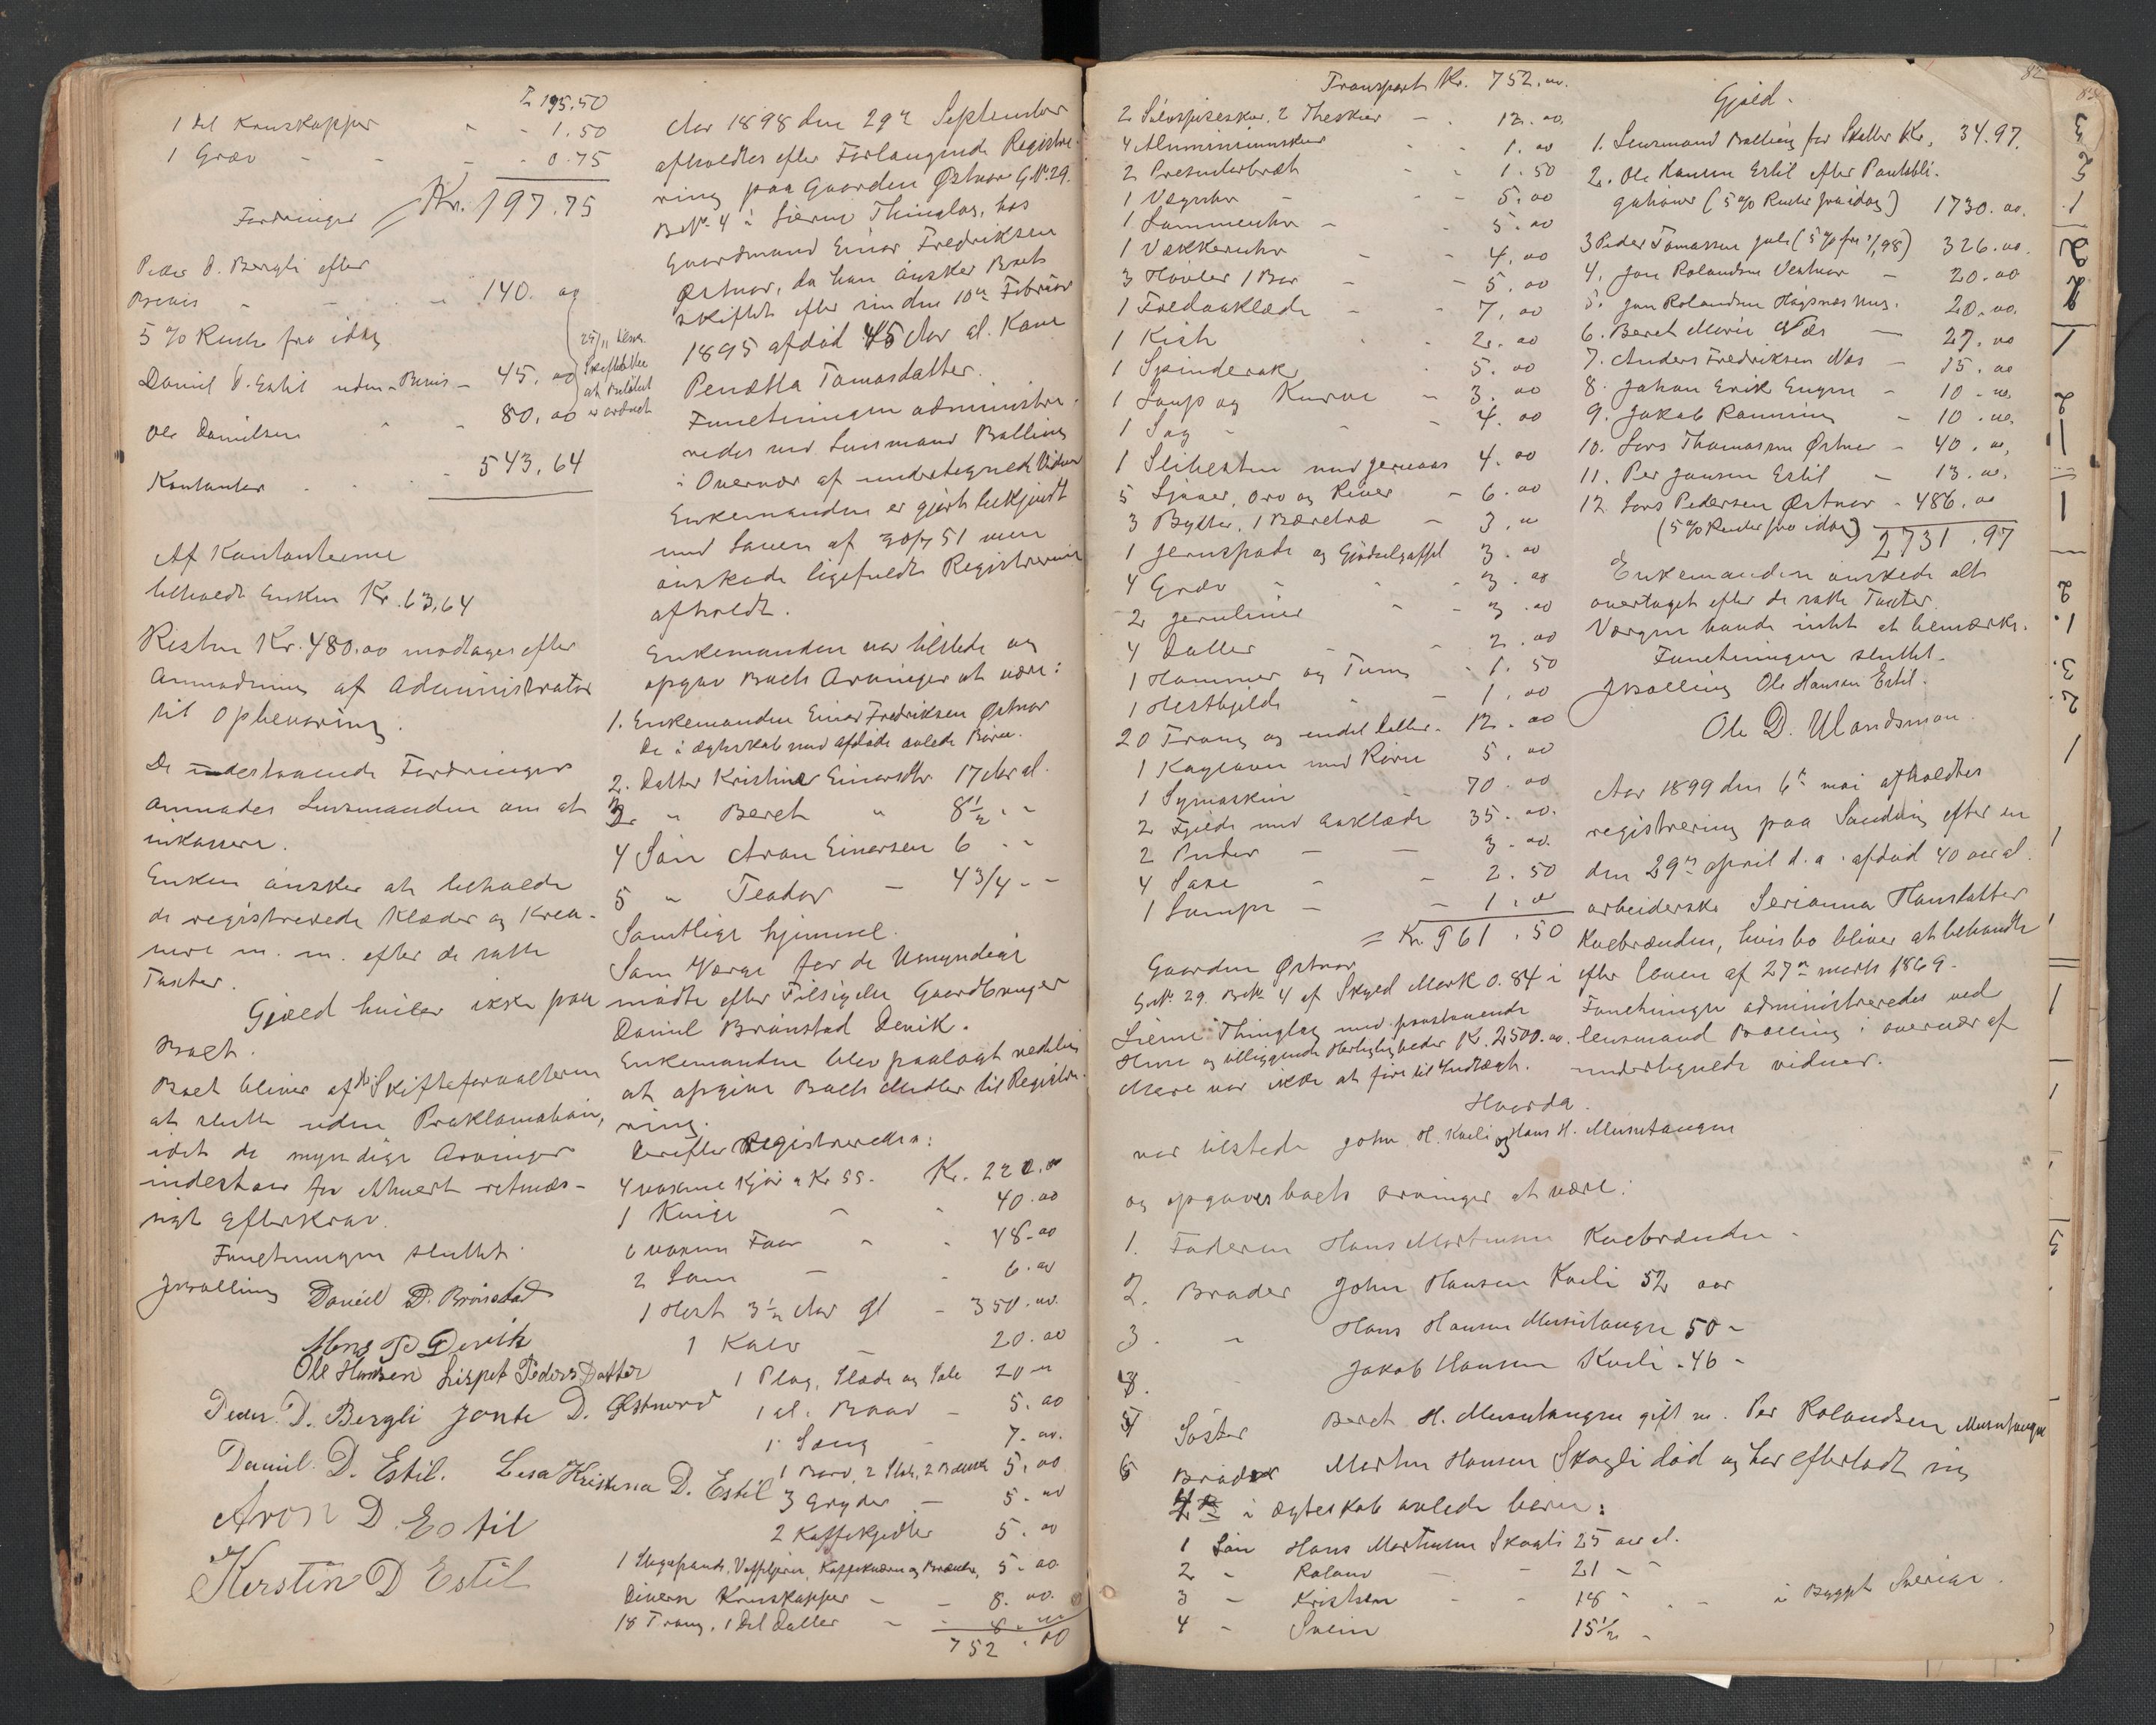 195.50
1 Del Kruskopper - - 1.50
1 Græv - - - 0.75
Fordringer Kr. 197.75
Peder D. Bergli efter
Bevis - - - 140.00
5 % Rente fra idag
Daniel D. Estil uden Bevis - 45.00
Ole Danielsen - - 80.00
at Beløbet
er ordnet
Kontanter - - - 543.64
Af Kontanterne
beholdt Enken Kr. 63,64
Resten Kr. 480.00 modtages efter
Anmodning af Administrator
til Opbevaring.
De udestaaende Fordringer
anmodes Lensmanden om at
inkassere.
Enken ønsker at beholde
de registrerede Klæder og Krea-
turer m. m. efter de satte
Taxter.
Gjæld hviler ikke paa
Boet.
Boet bliver af Skifteforvalteren
at slutte uden Proklamation,
idet de myndige Arvinger
indestaar for ethvert retmæs-
sigt Efterkrav.
Forretningen sluttet.
JBolling Daniel D. Brönstad
Mons P Devik
Ole Hansen Lispet Peders Datter
Peder. D. Bergli Jonte D. Østnord
Daniel. D. Estil. Lesa Kristina D. Estil
Aron D. Estil
Kerstin D Estil
Aar 1898 den 29de September
afholdtes efter Forlangende Registre-
ring paa Gaarden Østnor GNo. 29.
BNo. 4 i Lierne Thinglag, hos
Gaardmand Einar Fredriksen
Østnor, da han ønsker Boet
skiftet efter sin den 10de Februar
1895 afdød 45 Aar gl. Kone
Penætta Tomasdatter.
Forretningen administre-
redes ved Lensmand Bolling
i Overvær af undertegnede Vidner
Enkemanden er gjort bekjendt
med Loven af 30/7 51 men
ønskede ligefuldt Registrering
afholdt.
Enkemanden var tilstede og
opgav Boets Arvinger at være:
1. Enkemanden Einar Fredriksen Østnor
De i ægteskab med afdøde avlede Börn.
2. Datter Kristine Einarsdtr 17 Aar gl.
3. " Beret " 8½ " "
4 Søn Aron Einarsen 6 " "
5 " Teodor - 4 3/4 - -
Samtlige hjemme.
Som Værge for de Umyndige
mødte efter Tilsigelse Gaardbruger
Daniel Brönstad Devik.
Enkemanden blev paalagt
at opgive Boets Midler til Registre-
ring.
Derefter Registreredes:
4 voxne Kjør a Kr 55. Kr. 220.00
1 Kvige - - 40.00
6 voxne Faar - - 48.00
2 Lam - - 6.00
1 Hest 3½ Aar gl - 350.00
1 Kalv - 20.00
1 Plog, Slæde og Sele 20 -
1 gl. Baad - 5.00
1 Seng - 7.00
1 Bord, 2 Stole, 2 Bænke 5.00
3 Gryder - 5.00
2 Kaffekjedler 5.00
1 Stegepande, Vaffeljern, Kaffekværn og Brænder, 5.00
Diverse Kruskopper - - 8.00
18 Traug, 1 Del Daller - - 8.00
752.00
82
Transport Kr. 752.00
2 Sølvspiseskeer, 2 Theskeer - 12.00
4 Aluminiumskeer - - 1.00
2 Presenterbræt - - 1.50
1 Væguhr - - 5.00
1 Lommeuhr - - 5.00
1 Vækkeruhr - - 4.00
3 Høvler 1 Bor - - 5.00
1 Foldaaklæde - - 7.00
1 Kiste - - 2.00
1 Spinderok - 5.00
1 Laup og Kurve - 3.00
1 Sag - - - 4.00
1 Slibesten med Jernaas 4.00
5 Ljaaer, Orv og River - 6.00
3 Bytter, 1 Bæretræ - 3.00
1 Jernspade og Gjødselgaffel 3.00
4 Græv - - 3.00
2 Jernliner - - 3.00
4 Daller - - 2.00
1 Hammer og Tang - 1.50
1 Hestbjelde - 1.00
20 Traug og endel Daller - 12.00
1 Kageovn med Rører 5.00
1 Symaskin - 70.00
2 Fjelde med Aaklæde 35.00
2 Puder - - 3.00
4 Saxe - - 2.50
1 Lampe - - 1.00
= Kr. 961.50
Gaarden Østnor
GNo. 29. BNo 4 af Skyld Mark 0.84 i
Lierne Thinglag med paastaaende
Huse og tilliggende Herligheder Kr. 2500.00
Mere var ikke at føre til Indtægt.
Gjæld.
1. Lensmand Bolling for Skatter Kr. 34.97.
2. Ole Hansen Estil efter Pantobli-
gationer (5 % Renter fra idag) 1730.00.
3 Peder Tomassen Jule (5 % fra 1/1 98) 326.00
4. Jon Rolandsen Vestnor - 20.00
5. Jon Rolandsen Høgsnes Mus. 20.00.
6. Beret Marie Næs - 27.00
7. Anders Fredriksen Nos - 15.00
8. Johan Erik Engen - 10.00
9. Jakob Rönning - 10.00
10. Lars Thomassen Østnor - 40.00,
11. Per Jonsen Estil - 13.00.
12. Lars Pedersen Østnor - 486.00
(5 % Renter fra idag) 2731.97
Enkemanden ønskede alt
overtaget efter de satte Taxter.
Værgen havde intet at bemærke.
Forretningen sluttet.
JBolling Ole Hansen Estil.
Ole D. Ulandsmoen.
Aar 1899 den 6te mai afholdtes
registrering paa Sandvig efter en
den 29de april d. a. afdød 40 aar gl.
arbeiderske Serianna Hansdatter
Kvebrænden, hvis bo bliver at behandle
efter loven af 27de marts 1869.
Forretningen administreredes ved
lensmand Bolling i overvær af
undertegnede vidner.
Hvorda
var tilstede John H. Kveli og Hans H. Murutangen
og opgaves boets arvinger at være:
1. Faderen Hans Mortensen Kvebrænden -
2. Broder John Hansen Kveli 52 aar
3. " Hans Hansen Murutangen 50 -
4. Jakob Hansen Kveli - 46 -
5 Søster Beret H. Murutangen gift m. Per Rolandsen Murutangen
6 Broder Morten Hansen Skogli død og har efterladt sig
4 i ægteskab avlede barn:
1 Søn Hans Mortensen Skogli 25 aar gl.
2 - Roland - - 21 -
3 - Kristian - - 18 - - -
4 - Svein 15½ -